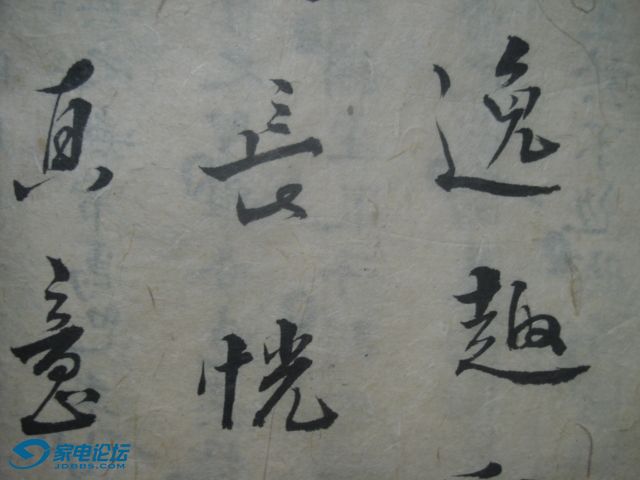 逸趣
長恍
真意
家电论坛
JDBBS.COM